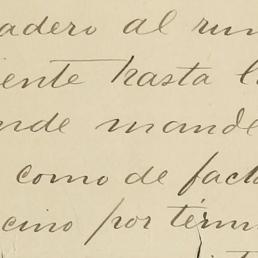 adero al rum
iente hasta l
nde mande
como de fact
cino por térm